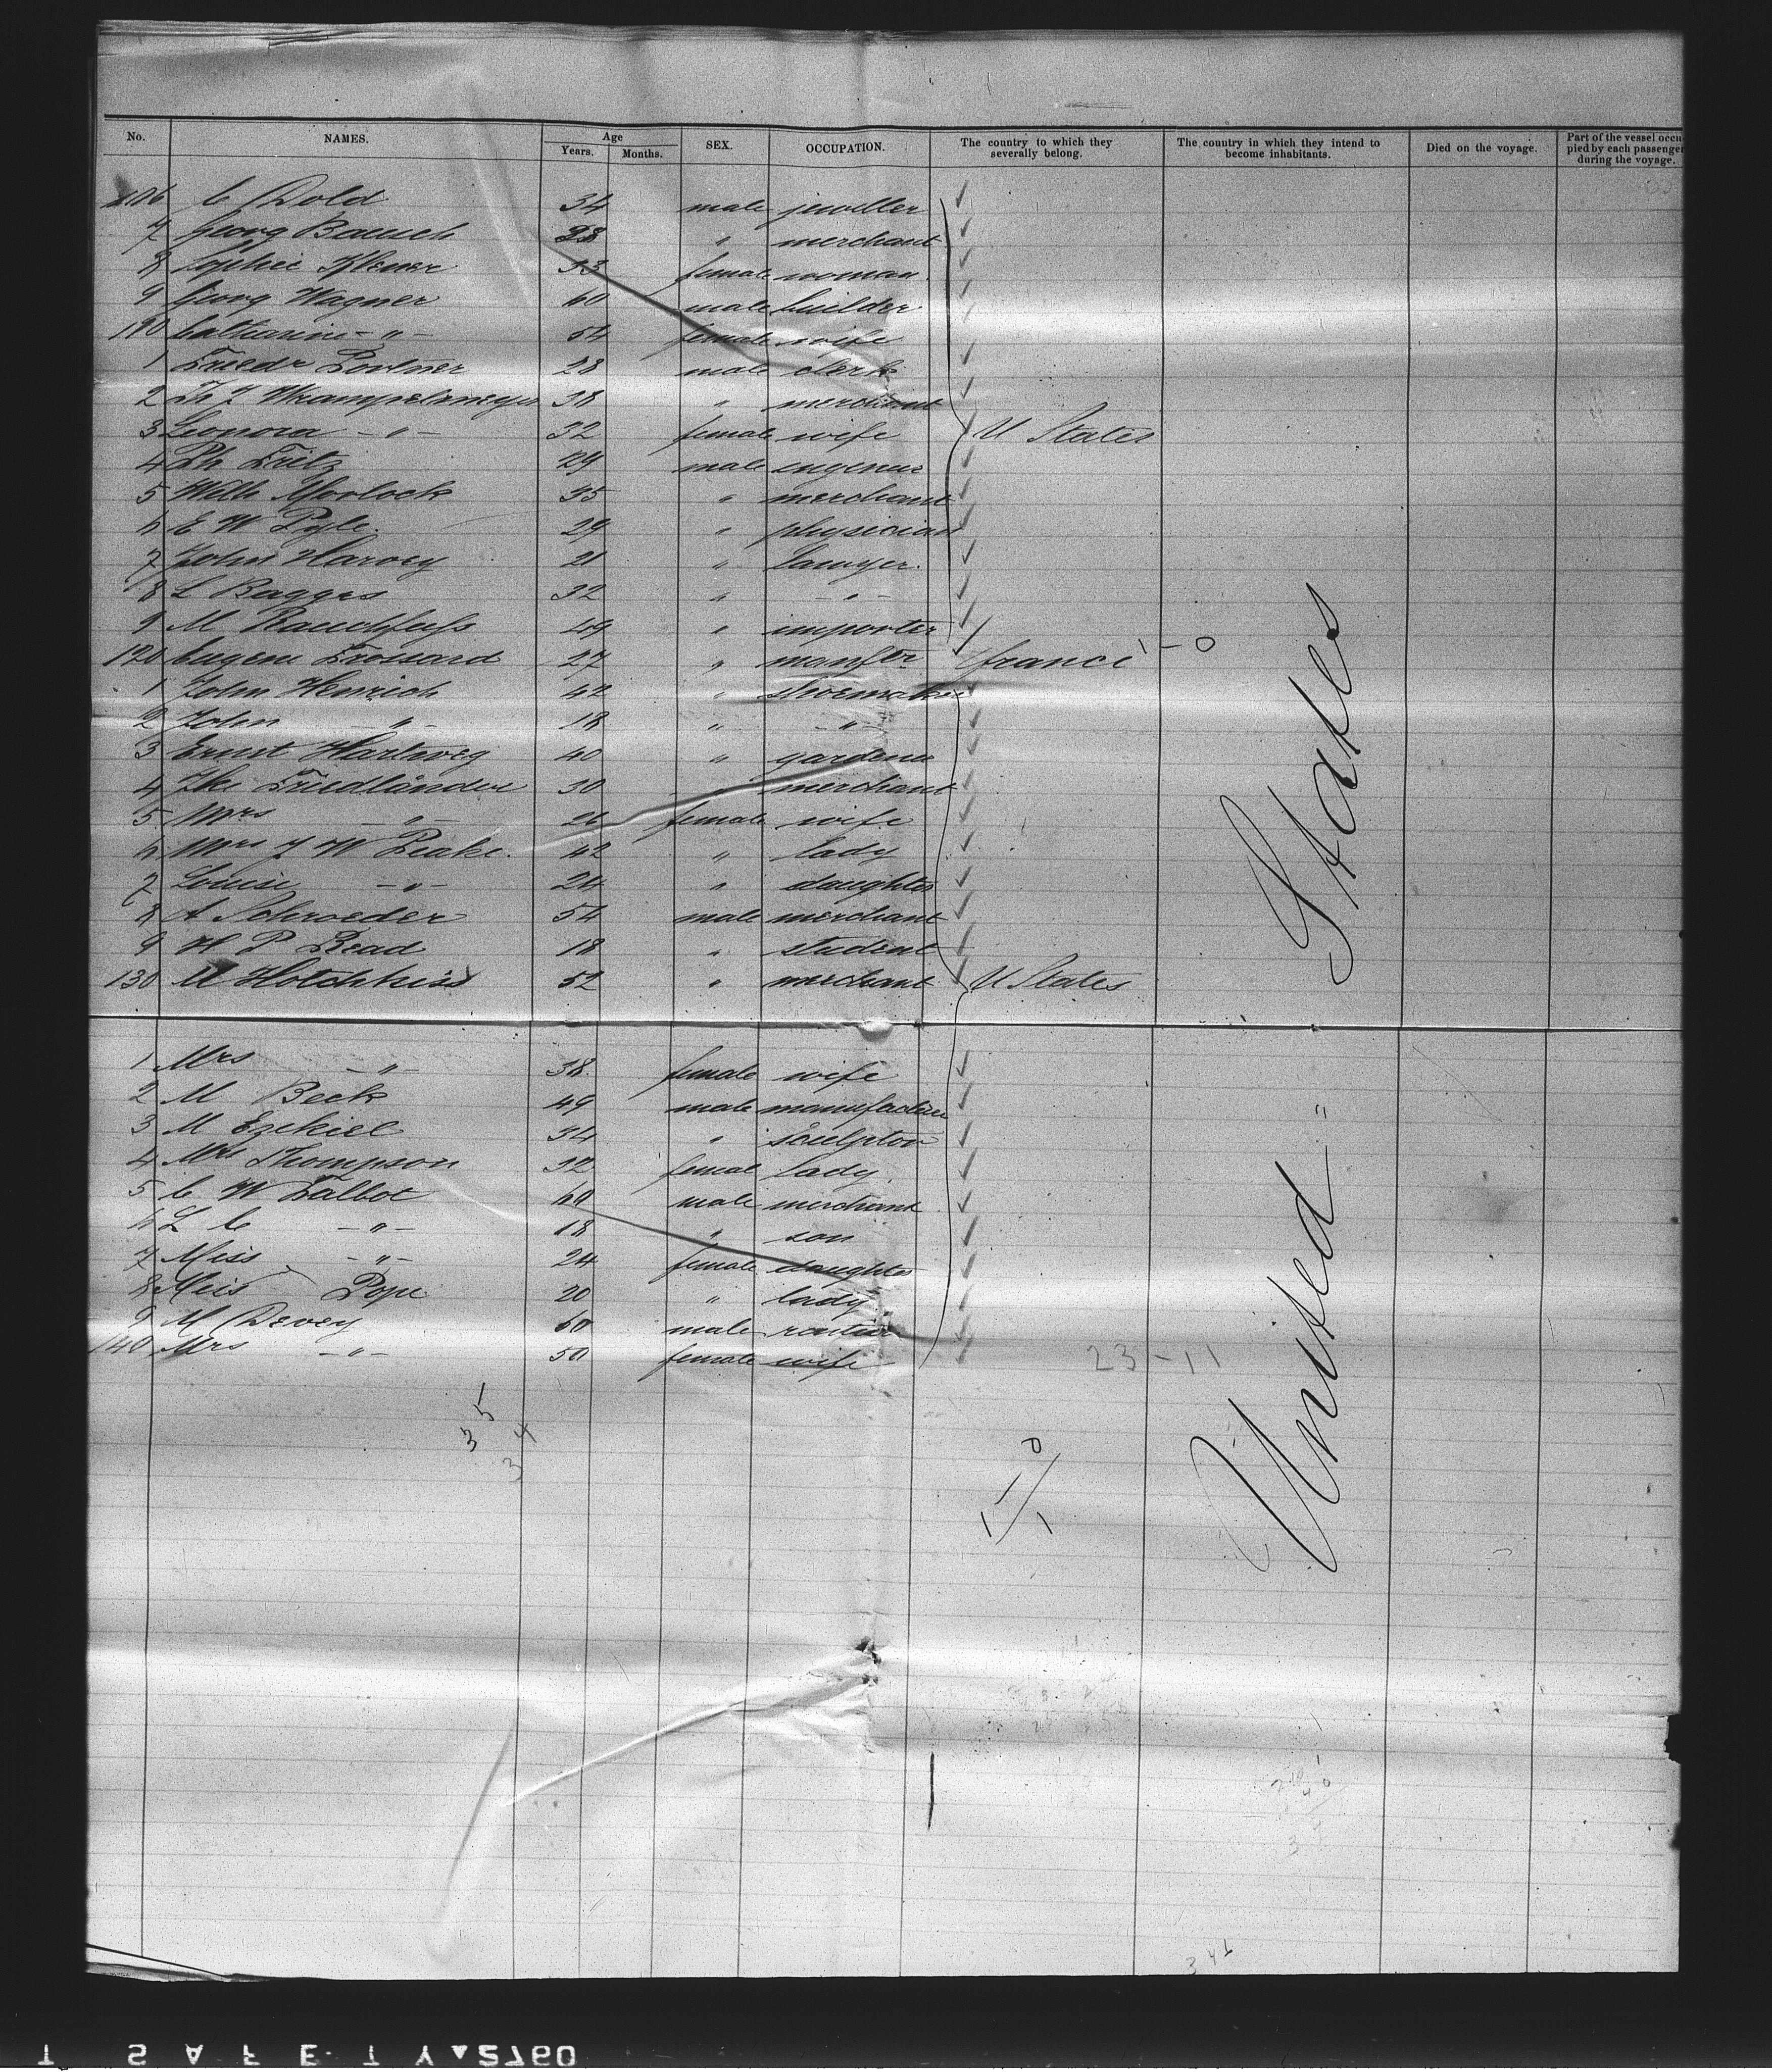 No. NAMES. Age Years. Months. SEX. OCCUPATION. The country to which they severally belong. The country in which they intend to become inhabitants. Died on the voyage. Part of the vessel occupied by each passenger during the voyage.
106 C Dold 34 male jeweller
7 Georg Bausch 28 " merchant
8 Sophie 33 female woman
9 Georg Wagner 60 male builder
110 Catharine - " - 54 female wife
1 Friedr Portner 28 male clerk
2 Wrampelmeyer 38 " merchant
3 Leonora - " - 32 female wife U States
4 Ph Fritz 29 male engeneer
5 Wilh Morlock 35 " merchant
6 E W Pyle. 29 " physician
7 John Harvey 21 " Lawyer.
8 L Baggrs 32 " - " -
9 M Rauchfuss 49 " importer
120 Eugene Brossard 27 " manftr france 1 - 0
1 John Henrich 42 " shoemaker
2 John - " - 18 " - " -
3 Ernst Hartweg 40 " gardener
4 Friedländer 30 " merchant
5 Mrs - " - 26 female wife
6 Mrs J W Peake. 42 " lady
7 Louise - " - 24 " daughter
8 A Schroeder 54 male merchant
9 H P Read 18 " student
130 M Hotchkiss 52 " merchant U States
1 Mrs - " - 38 female wife
2 M Beck 49 male manufacturer
3 M Ezekiel 34 " sculptor
4 Mrs Thompson 32 female lady
5 C W Talbot 60 male merchant
6 L C - " - 18 " son
7 Miss - " - 24 female daughter
8 Miss Pope 20 " lady
9 M Devey 60 male rentier
140 Mrs - " - 50 female wife
United States
23 - 11
341
T SAFETY 2760